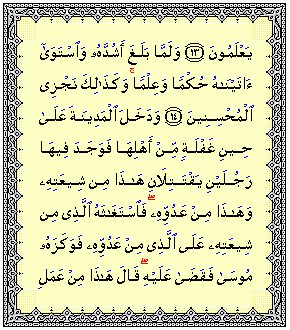 يَعْلَمُونَ ۝١٣ وَلَمَّا بَلَغَ أَشُدَّهُۥ وَٱسْتَوَىٰٓ
ءَاتَيْنَٰهُ حُكْمًا وَعِلْمًا ۚ وَكَذَٰلِكَ نَجْزِى
ٱلْمُحْسِنِينَ ۝١٤ وَدَخَلَ ٱلْمَدِينَةَ عَلَىٰ
حِينِ غَفْلَةٍ مِّنْ أَهْلِهَا فَوَجَدَ فِيهَا
رَجُلَيْنِ يَقْتَتِلَانِ هَٰذَا مِن شِيعَتِهِۦ
وَهَٰذَا مِنْ عَدُوِّهِۦ ۖ فَٱسْتَغَٰثَهُ ٱلَّذِى مِن
شِيعَتِهِۦ عَلَى ٱلَّذِى مِنْ عَدُوِّهِۦ فَوَكَزَهُۥ
مُوسَىٰ فَقَضَىٰ عَلَيْهِ ۖ قَالَ هَٰذَا مِنْ عَمَلِ